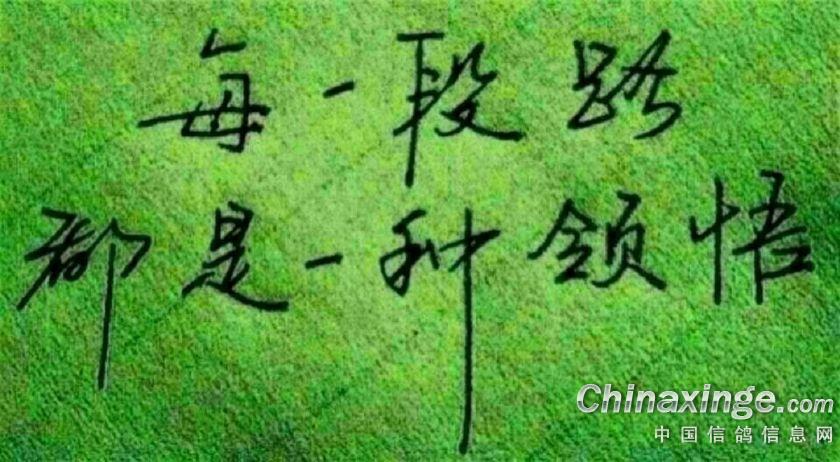 每一段路
都是一种领悟
Chinaxinge.com
中国信鸽信息网